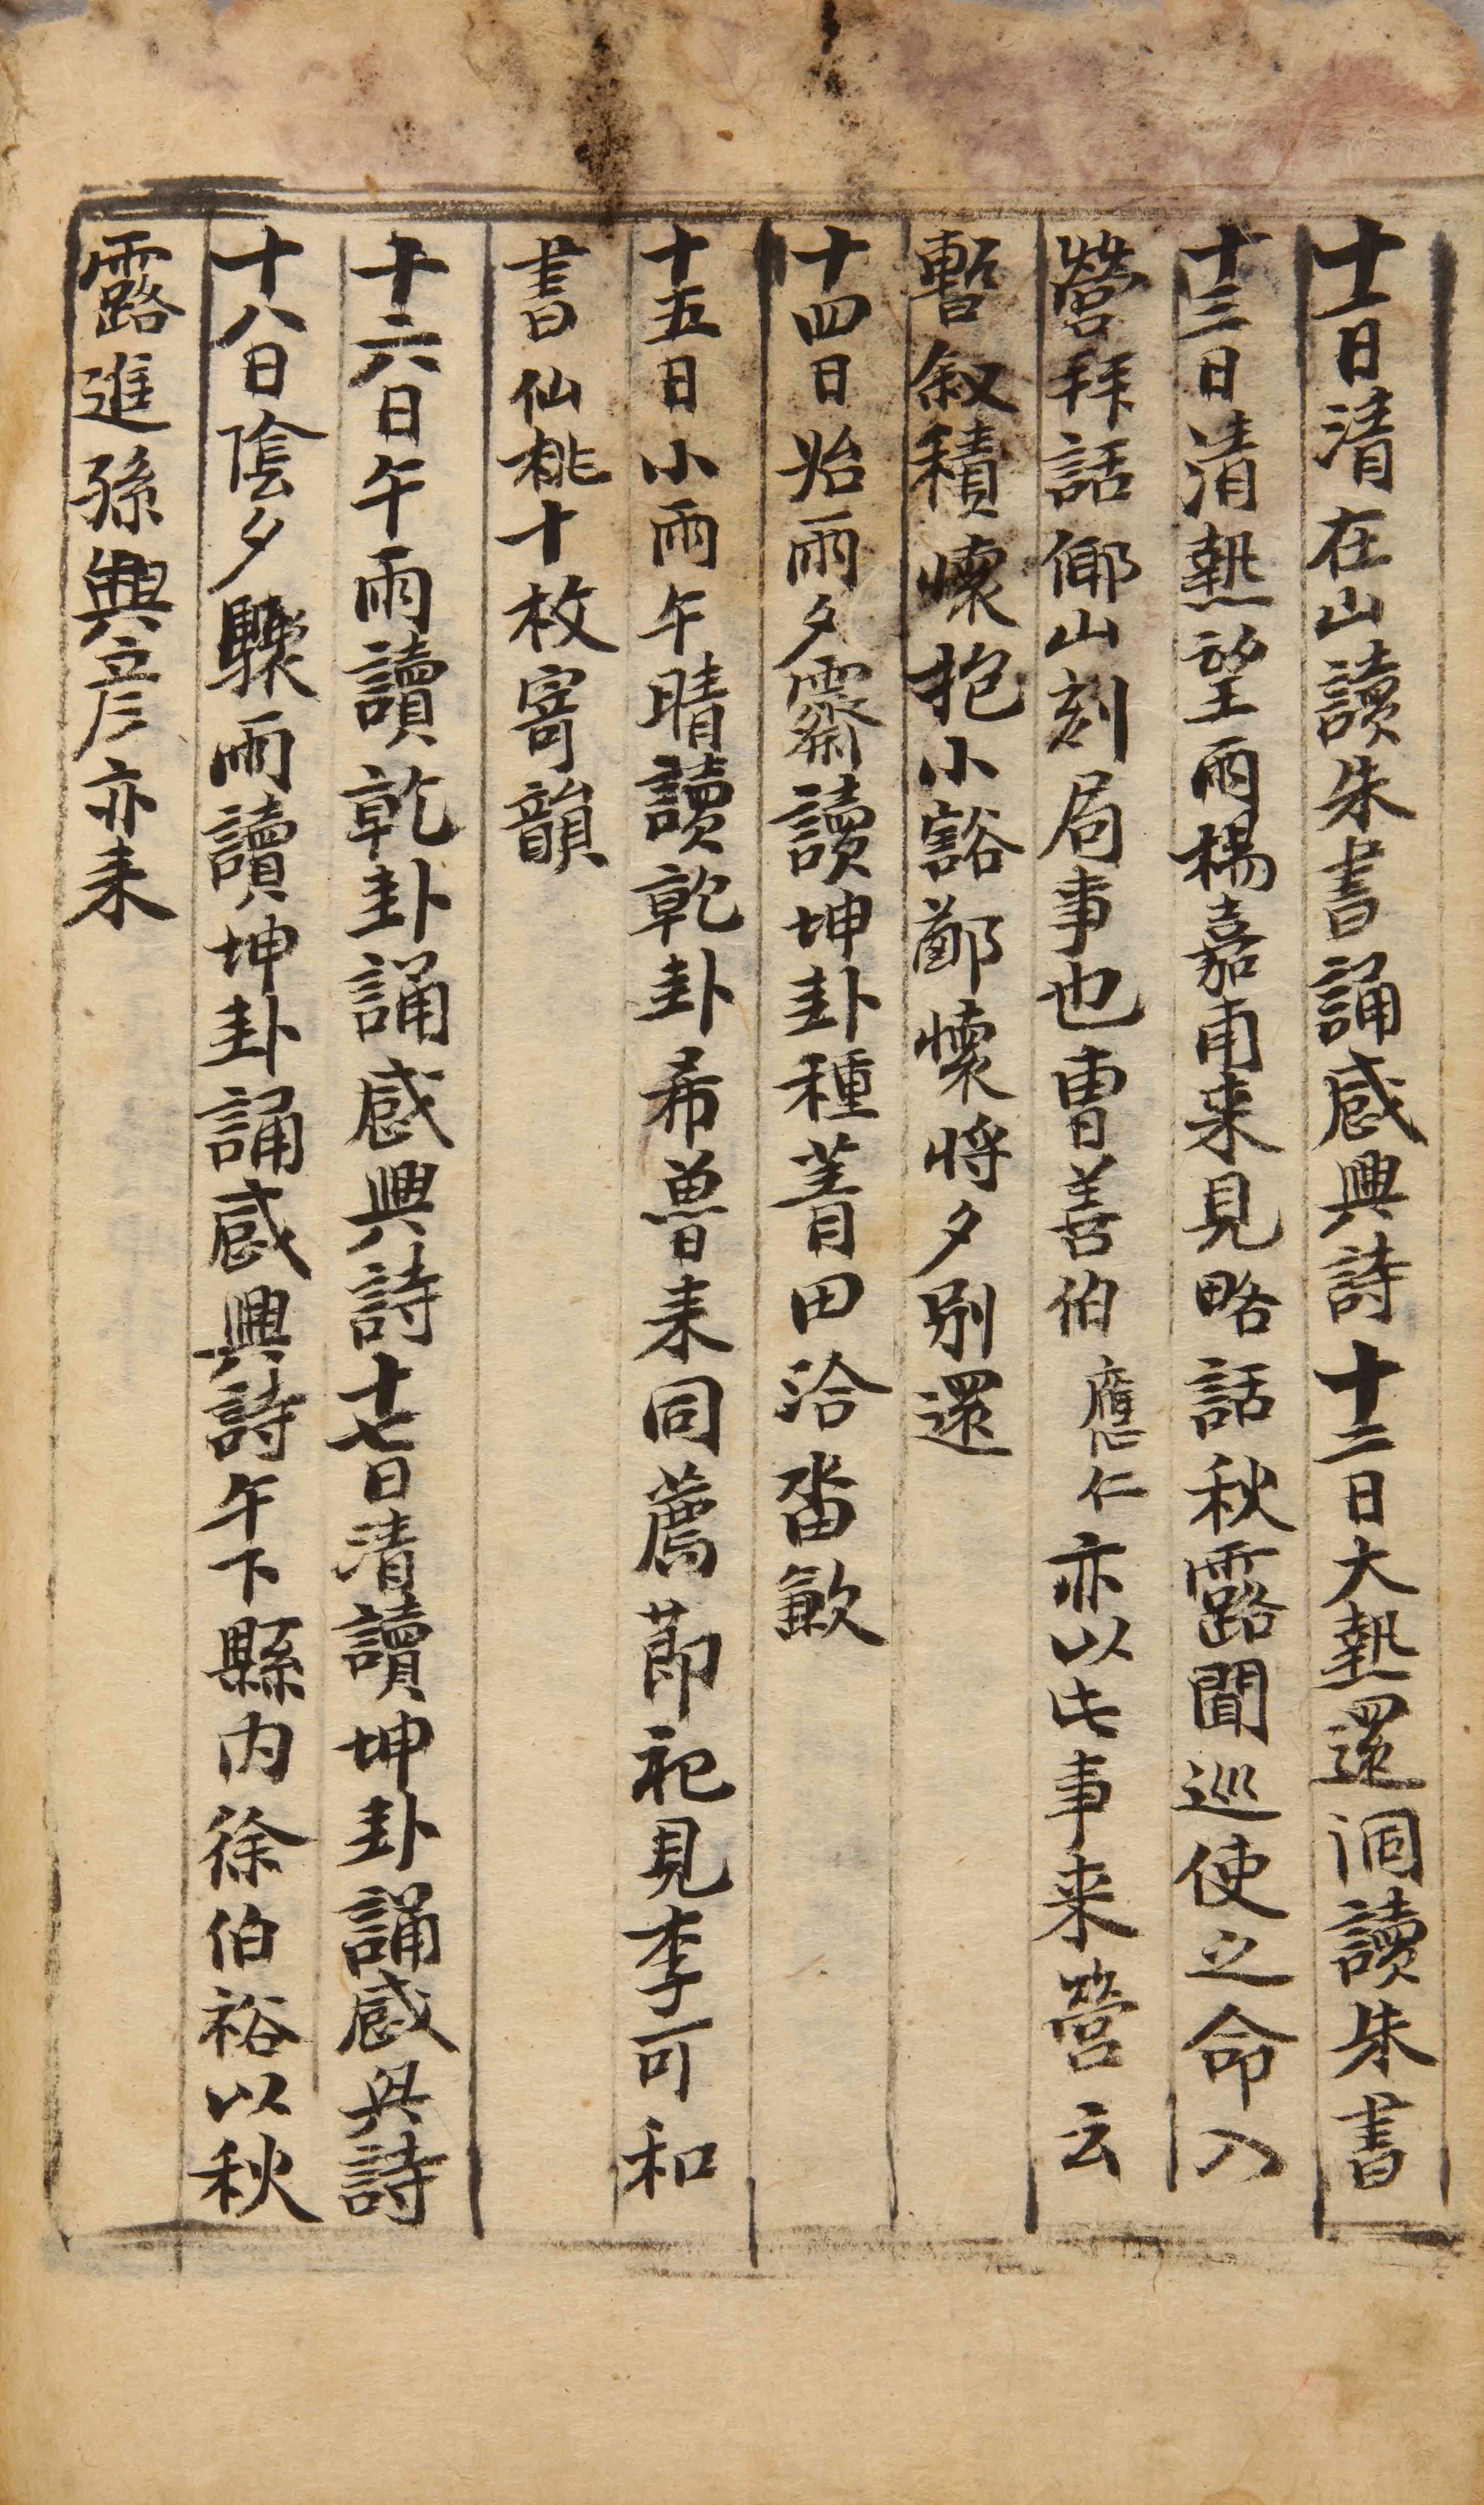 十一日清在山讀朱書誦感興詩十二日大熱還洞讀朱書
十三日清熱望雨楊嘉甫来見略話秋露聞巡使之命入
營拜話倻山刻局事也曺善伯應仁亦以此事来營云
暫叙積懷抱小豁鄙懷將夕別還
十四日始雨夕霽讀坤卦種菁田洽畓畝
十五日小雨午晴讀乾卦希魯来同薦節祀見李可和
書仙桃十枚寄韻
十六日午雨讀乾卦誦感興詩十七日清讀坤卦誦感興詩
十八日陰夕驟雨讀坤卦誦感興詩午下縣内徐伯裕以秋
露進孫興彦亦来